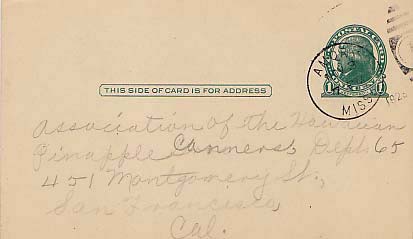 THIS SIDE OF CARD IS FOR ADDRESS
MISS
1926
Association of the Hawaiian
Pinapple Canners Dept 65
451 Montgomery St,
San Francisco,
Cal.